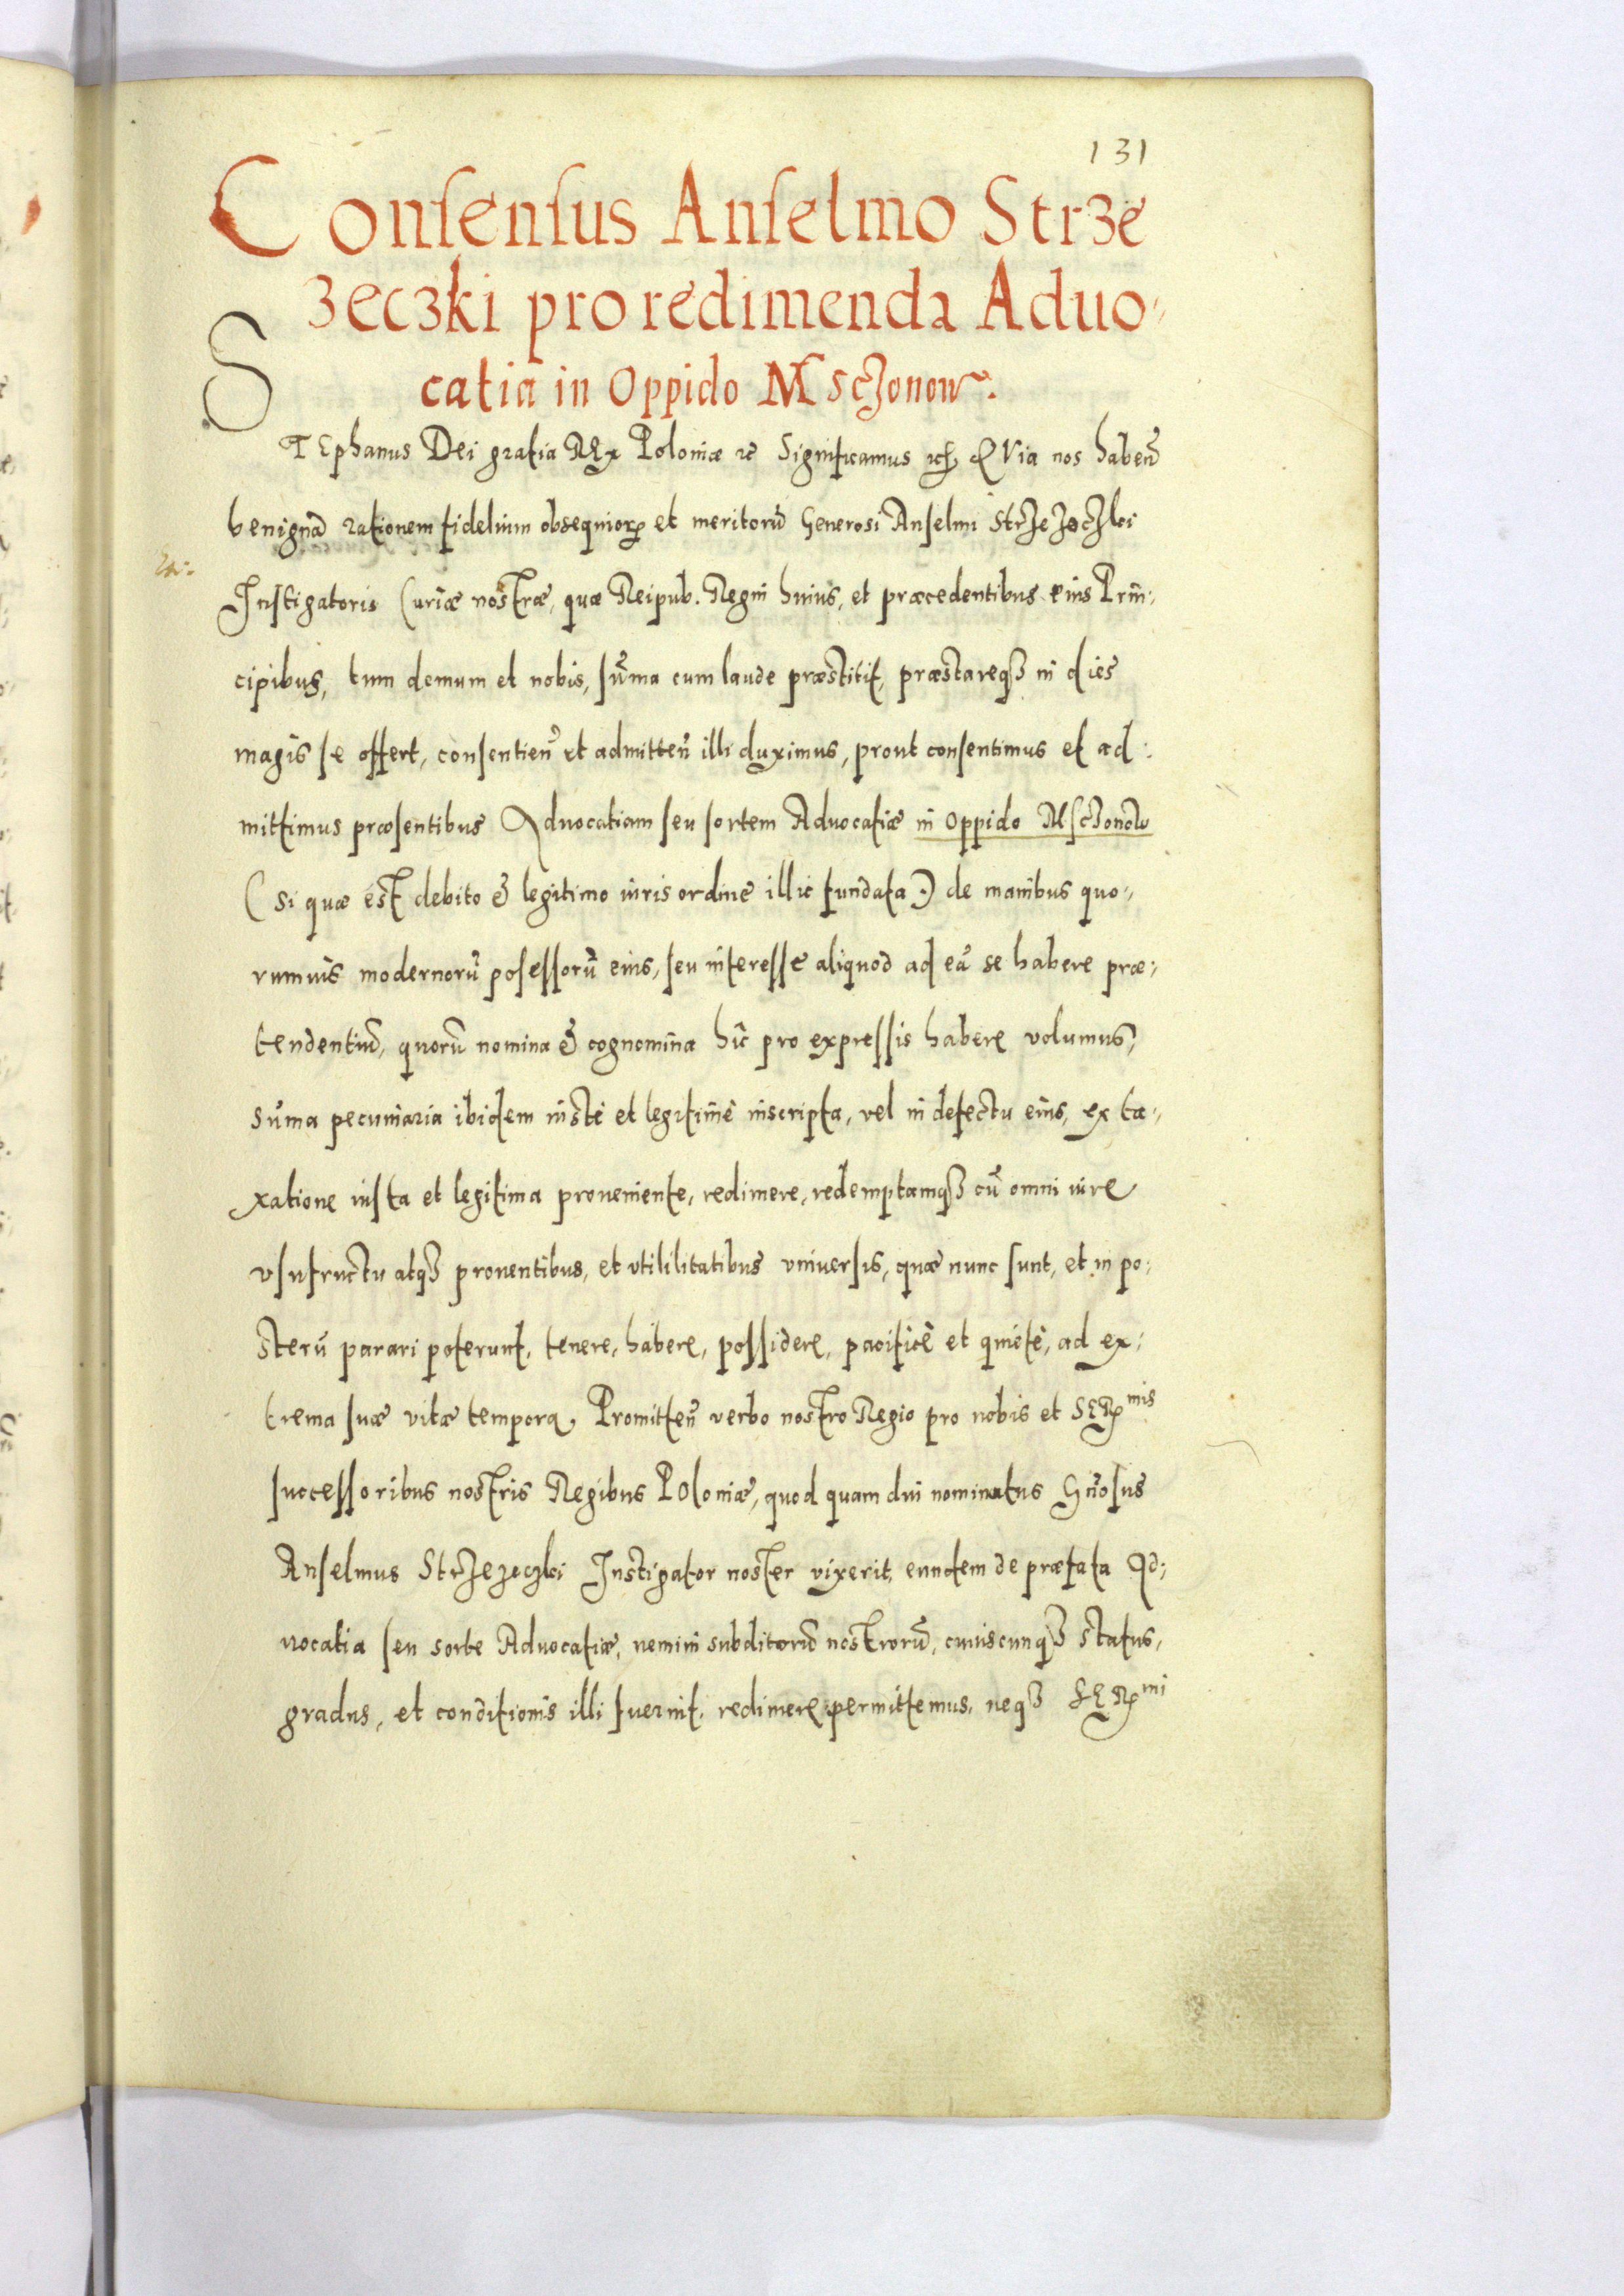 131
Consensus Anselmo Strze
zeczki pro redimenda Aduo-
catia in Oppido Msczonow.
STEphanus Dei gratia REx Poloniæ etc Significamus etc QVia nos haben̄
benignā rationem fidelium obsequioꝝ et meritorū Generosi Anselmi Strzezeczki
Instigatoris Curiæ nostræ, quæ Reipub. Regni huius, et præcedentibus eius Prin:
cipibus, tum demum et nobis, sūma cum laude præstitit, præstareqȝ in dies
magis se offert, consentien̄ et admitten̄ illi duximus, prout consentimus et ad:
mittimus præsentibus Aduocatiam seu sortem Aduocatiæ in Oppido Msczonow
(si quæ est debito & legitimo iuris ordine illic fundata.) de manibus quo-
rumuis modernorū posessorū eius, seu interesse aliquod ad eā se habere præ-
tendentiū, quorū nomina & cognomina hîc pro expressis habere volumus,
sūma pecuniaria ibidem iustè et legitimè inscripta, vel in defectu eius, ex ta-
xatione iusta et legitima proueniente, redimere, redemptamqȝ cū omni iure
vsufructu atqȝ prouentibus, et vtililitatibus vniuersis, quæ nunc sunt, et in po-
sterū parari poterunt, tenere, habere, possidere, pacificè et quietè, ad ex-
trema suæ vitæ tempora, Promitten̄ verbo nostro Regio pro nobis et SERmis
successoribus nostris Regibus POloniæ, quod quam diu nominatus Gn̄osus
Anselmus Strzezeczki Instigator noster vixerit, eundem de præfata Ad-
uocatia seu sorte Aduocatiæ, nemini subditorū nostrorū, cuiuscunqȝ status,
gradus, et conditionis illi fuerint, redimere permittemus, neqȝ SERmi